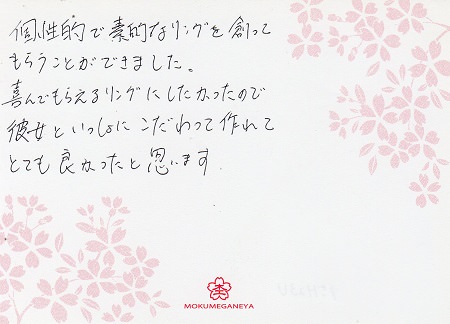 個性的で素的なリングを創って
もらうことができました。
喜んでもらえるリングにしたかったので
彼女といっしょにこだわって作れて
とても良かったと思います
MOKUMEGANEYA